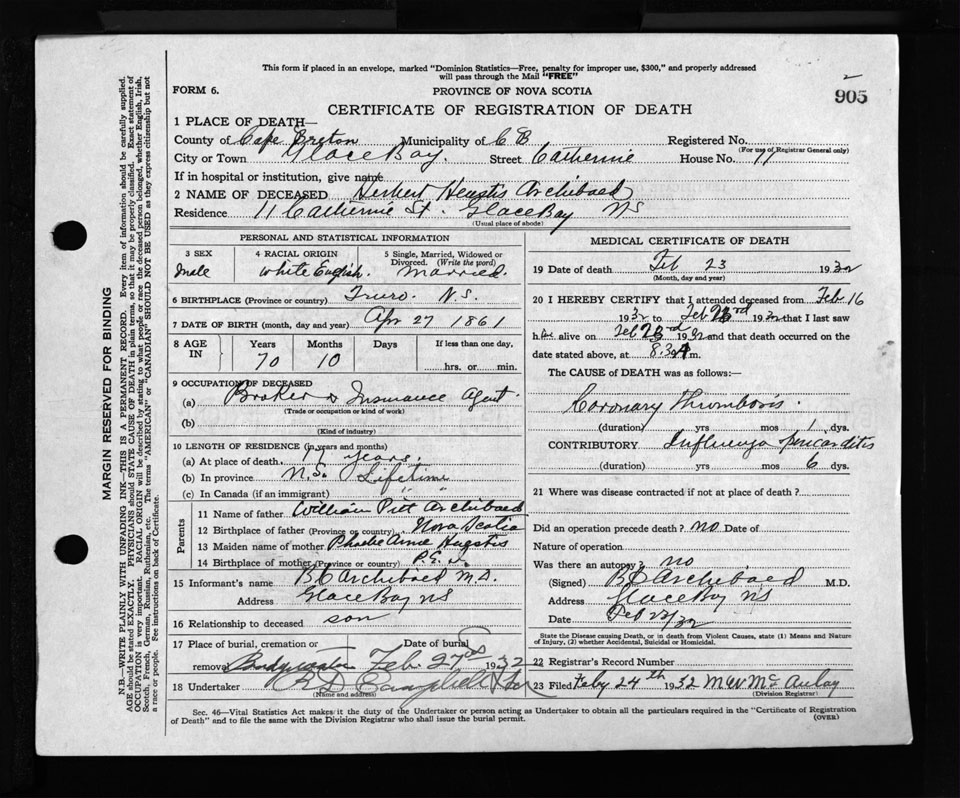 This form if placed in an envelope, marked "Dominion Statistics—Free, penalty for improper use, $300," and properly addressed
will pass through the Mail "FREE"
2
905
FORM 6.
PROVINCE OF NOVA SCOTIA
CERTIFICATE OF REGISTRATION OF DEATH
1 PLACE OF DEATH—
County of Cape Breton Municipality of C B Registered No.
(For use of Registrar General only)
City or Town Glace Bay. Street Catherine House No. 11
If in hospital or institution, give name
2 NAME OF DECEASED Herbert Huestis Archibald
Residence 11 Catherine St. Glace Bay NS
(Usual place of abode)
PERSONAL AND STATISTICAL INFORMATION
3 SEX
male
4 RACIAL ORIGIN
White English.
5 Single, Married, Widowed or
Divorced. (Write the word)
Married.
6 BIRTHPLACE (Province or country) Truro. N.S.
7 DATE OF BIRTH (month, day and year) Apr 27 1861
8 AGE IN
Years Months Days If less than one day,
70 10 hrs. or min.
9 OCCUPATION OF DECEASED
(a) Broker & Insurance Agent.
(Trade or occupation or kind of work)
(b)
(Kind of industry)
10 LENGTH OF RESIDENCE (in years and months)
(a) At place of death. years.
(b) In province N.S. Lifetime
(c) In Canada (if an immigrant) " "
Parents
11 Name of father William Pitt Archibald
12 Birthplace of father (Province or country) Nova Scotia
13 Maiden name of mother Phoebe Anne Huestis
14 Birthplace of mother (Province or country) P.E.I.
15 Informant's name B C Archibald M.D.
Address Glace Bay NS
16 Relationship to deceased son
17 Place of burial, cremation or Date of burial
removal Feb. 27 1932
18 Undertaker R D Campbell
(Name and address)
MEDICAL CERTIFICATE OF DEATH
19 Date of death Feb 23 1932
(Month, day and year)
20 I HEREBY CERTIFY that I attended deceased from Feb 16
1932 to Feb 23rd 1932 that I last saw
h im alive on Feb 23rd 1932 and that death occurred on the
date stated above, at 8.30 A m.
The CAUSE of DEATH was as follows:—
Coronary Thrombosis.
(duration) yrs mos 1 dys.
CONTRIBUTORY Influenza pericarditis
(duration) yrs mos 6 dys.
21 Where was disease contracted if not at place of death?
Did an operation precede death? no Date of
Nature of operation
Was there an autopsy? no
(Signed) B C Archibald M.D.
Address Glace Bay NS
Date Feb 23/32
State the Disease causing Death, or in death from Violent Causes, state (1) Means and Nature
of Injury, (2) whether Accidental, Suicidal or Homicidal.
22 Registrar's Record Number
23 Filed Feby 24th 1932 M W McAulay
(Division Registrar)
Sec. 46—Vital Statistics Act makes it the duty of the Undertaker or person acting as Undertaker to obtain all the particulars required in the "Certificate of Registration
of Death" and to file the same with the Division Registrar who shall issue the burial permit.
(OVER)
MARGIN RESERVED FOR BINDING
N.B.—WRITE PLAINLY WITH UNFADING INK—THIS IS A PERMANENT RECORD. Every item of information should be carefully supplied.
AGE should be stated EXACTLY. PHYSICIANS should STATE CAUSE OF DEATH in plain terms, so that it may be properly classified. Exact statement of
OCCUPATION is very important. RACIAL ORIGIN will be described by stating to what people or race the deceased person belonged, whether English, Irish,
Scotch, French, German, Russian, Ruthenian, etc. The terms "AMERICAN" or "CANADIAN" SHOULD NOT BE USED as they express citizenship but not
a race or people. See instructions on back of Certificate.